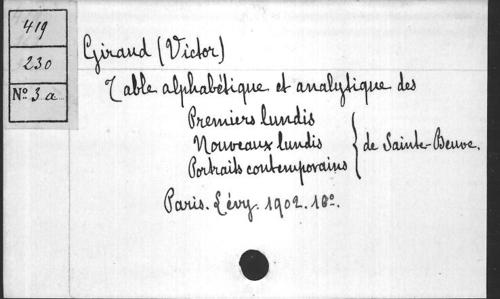 419
230
Nº 3 a
Giraud (Victor)
Table alphabétique et analytique des
Premiers lundis
Nouveaux lundis
Portraits contemporains
} de Sainte-Beuve.
Paris. Lévy. 1902. 18º.